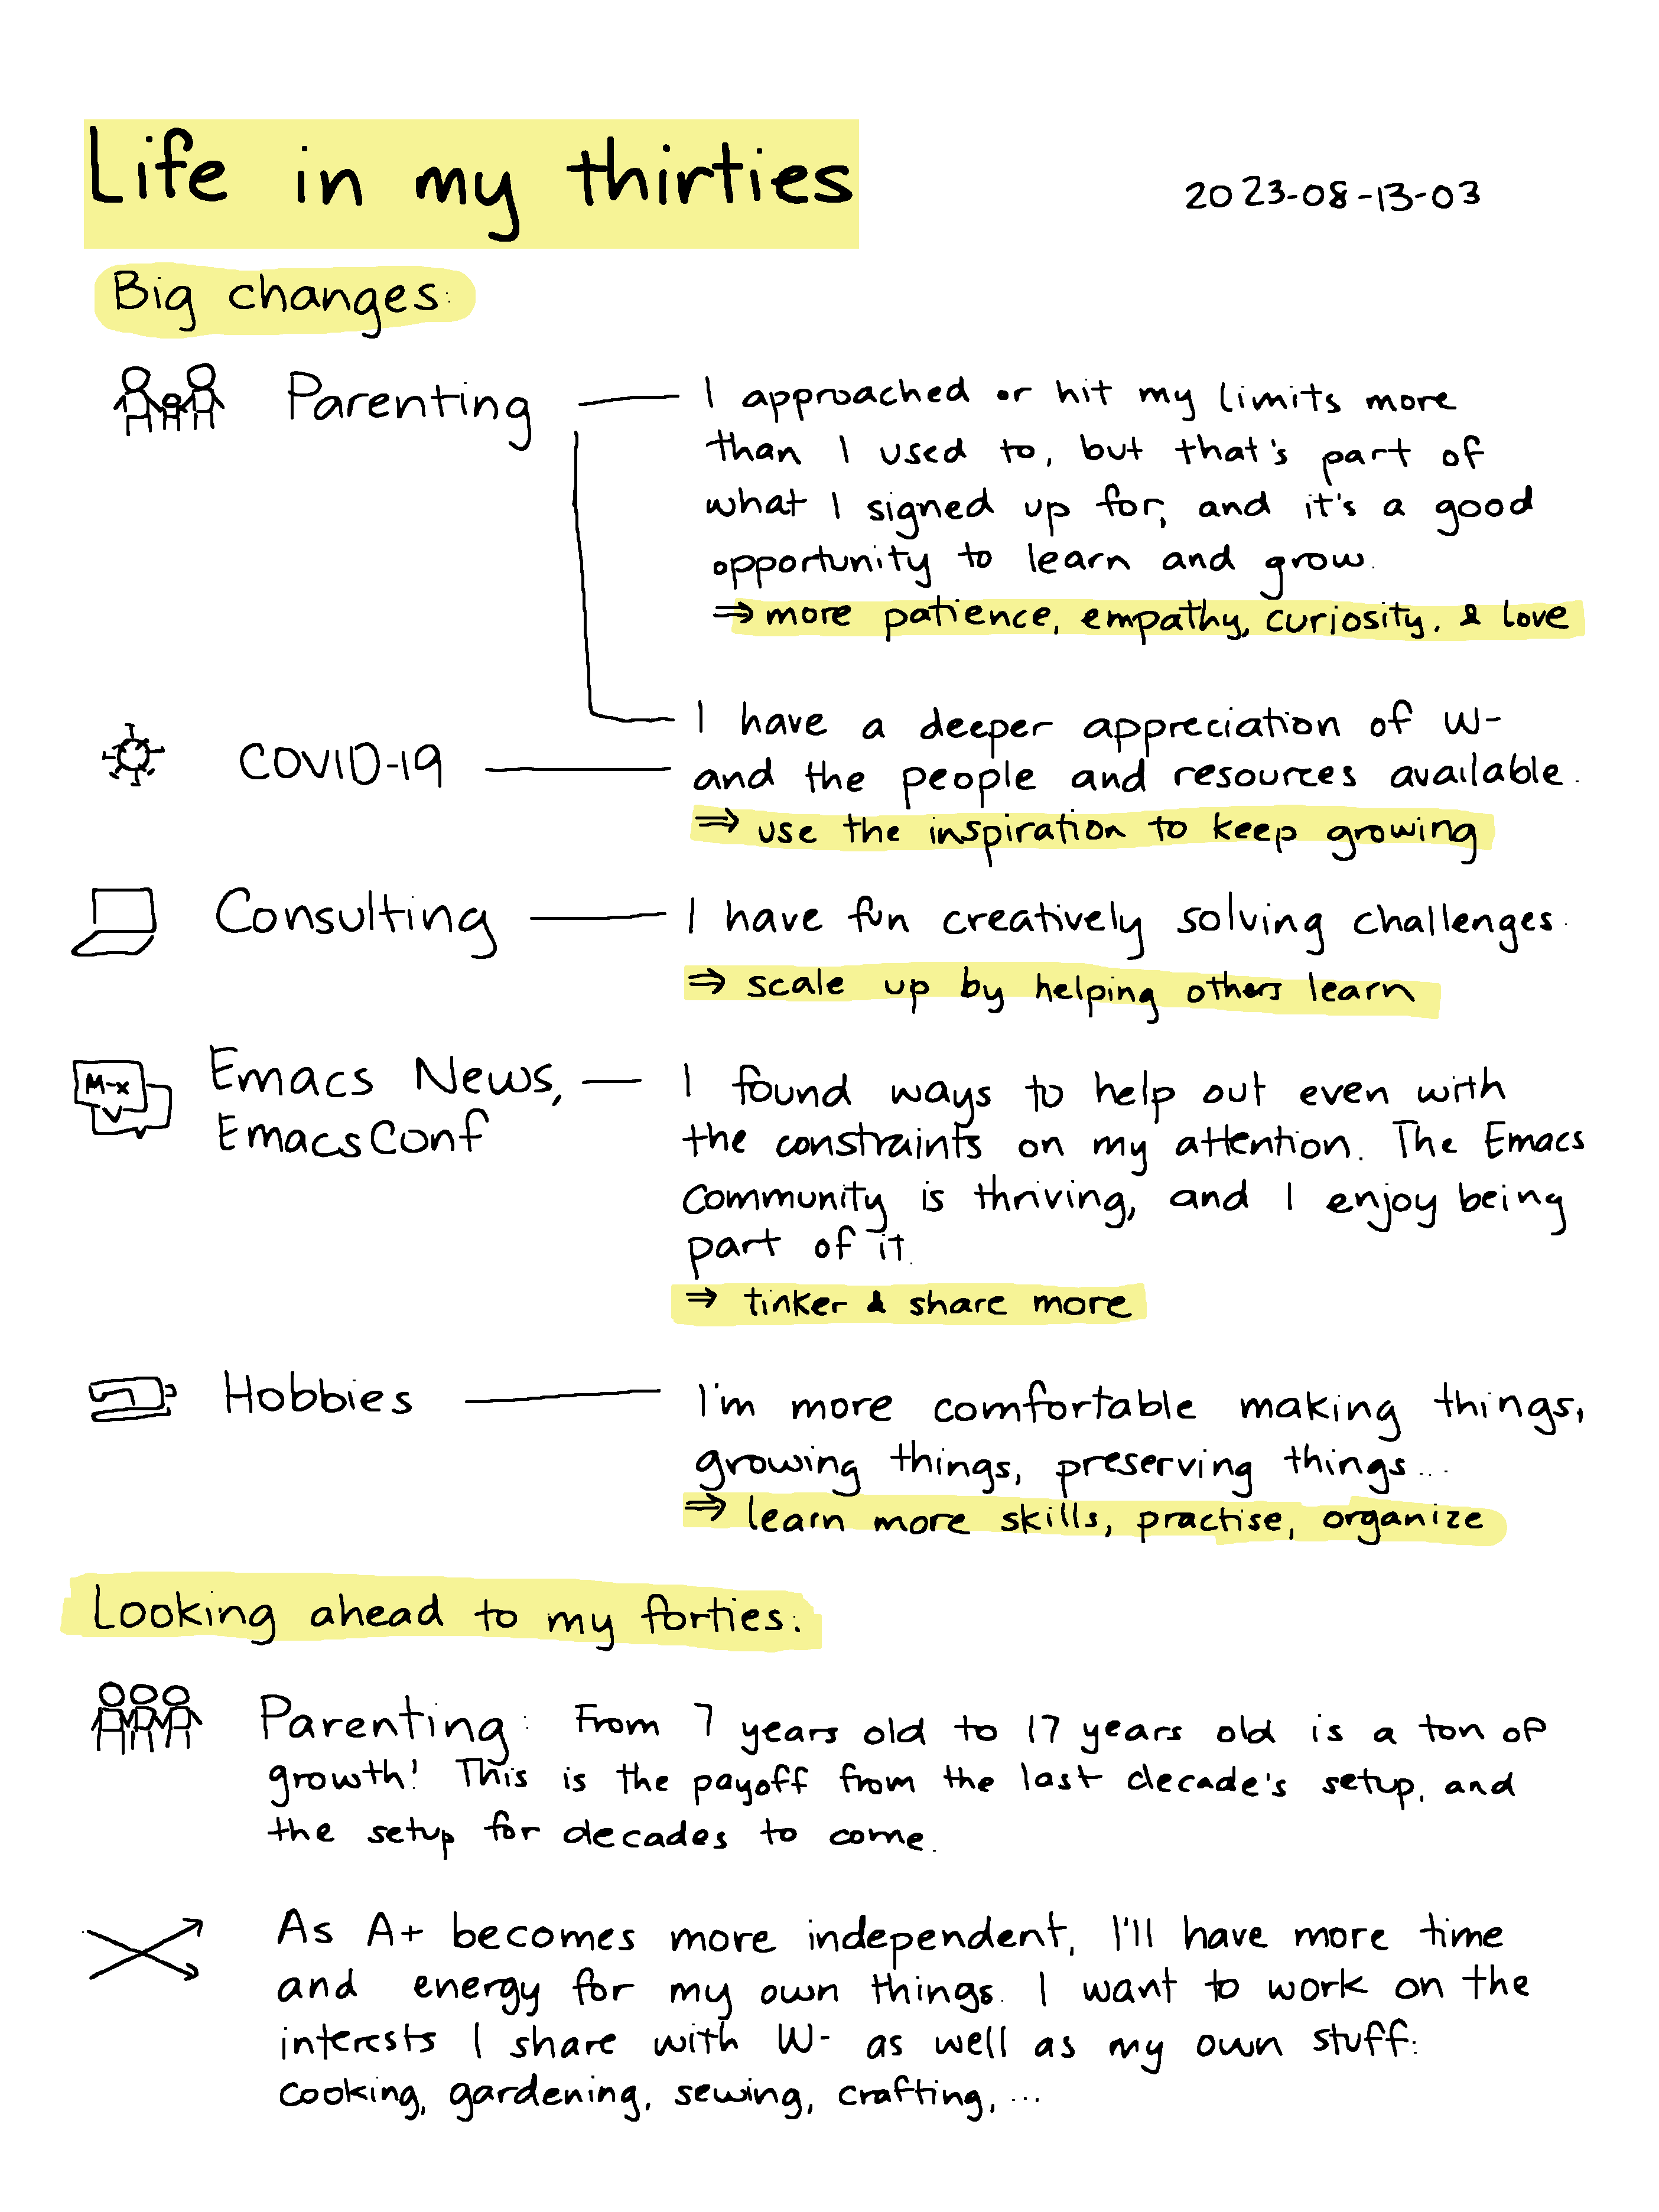 Life in my thirties
2023-08-13-03
Big changes:
Parenting
I approached or hit my limits more
than I used to, but that's part of
what I signed up for, and it's a good
opportunity to learn and grow.
⇒ more patience, empathy, curiosity, & love
COVID-19
I have a deeper appreciation of W-
and the people and resources available.
⇒ use the inspiration to keep growing
Consulting
I have fun creatively solving challenges.
⇒ scale up by helping others learn
M-x
Emacs News,
EmacsConf
I found ways to help out even with
the constraints on my attention. The Emacs
community is thriving, and I enjoy being
part of it.
⇒ tinker & share more
Hobbies
I'm more comfortable making things,
growing things, preserving things...
⇒ learn more skills, practise, organize
Looking ahead to my forties:
Parenting: From 7 years old to 17 years old is a ton of
growth! This is the payoff from the last decade's setup, and
the setup for decades to come.
As A+ becomes more independent, I'll have more time
and energy for my own things. I want to work on the
interests I share with W- as well as my own stuff:
cooking, gardening, sewing, crafting, ...